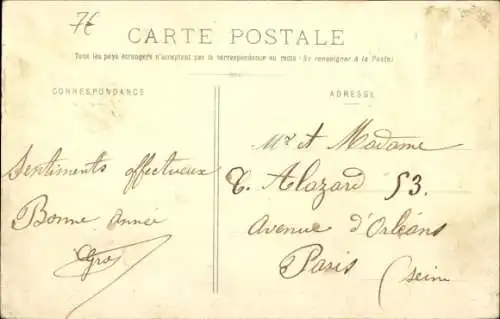 7€
CARTE POSTALE
Tous les pays étrangers n'acceptent pas la correspondance au recto (Se renseigner à la Poste)
CORRESPONDANCE
ADRESSE
Sentiments affectueux
Bonne année
Mr et Madame
C. Alazard 53.
Avenue d'Orléans
Paris
(Seine